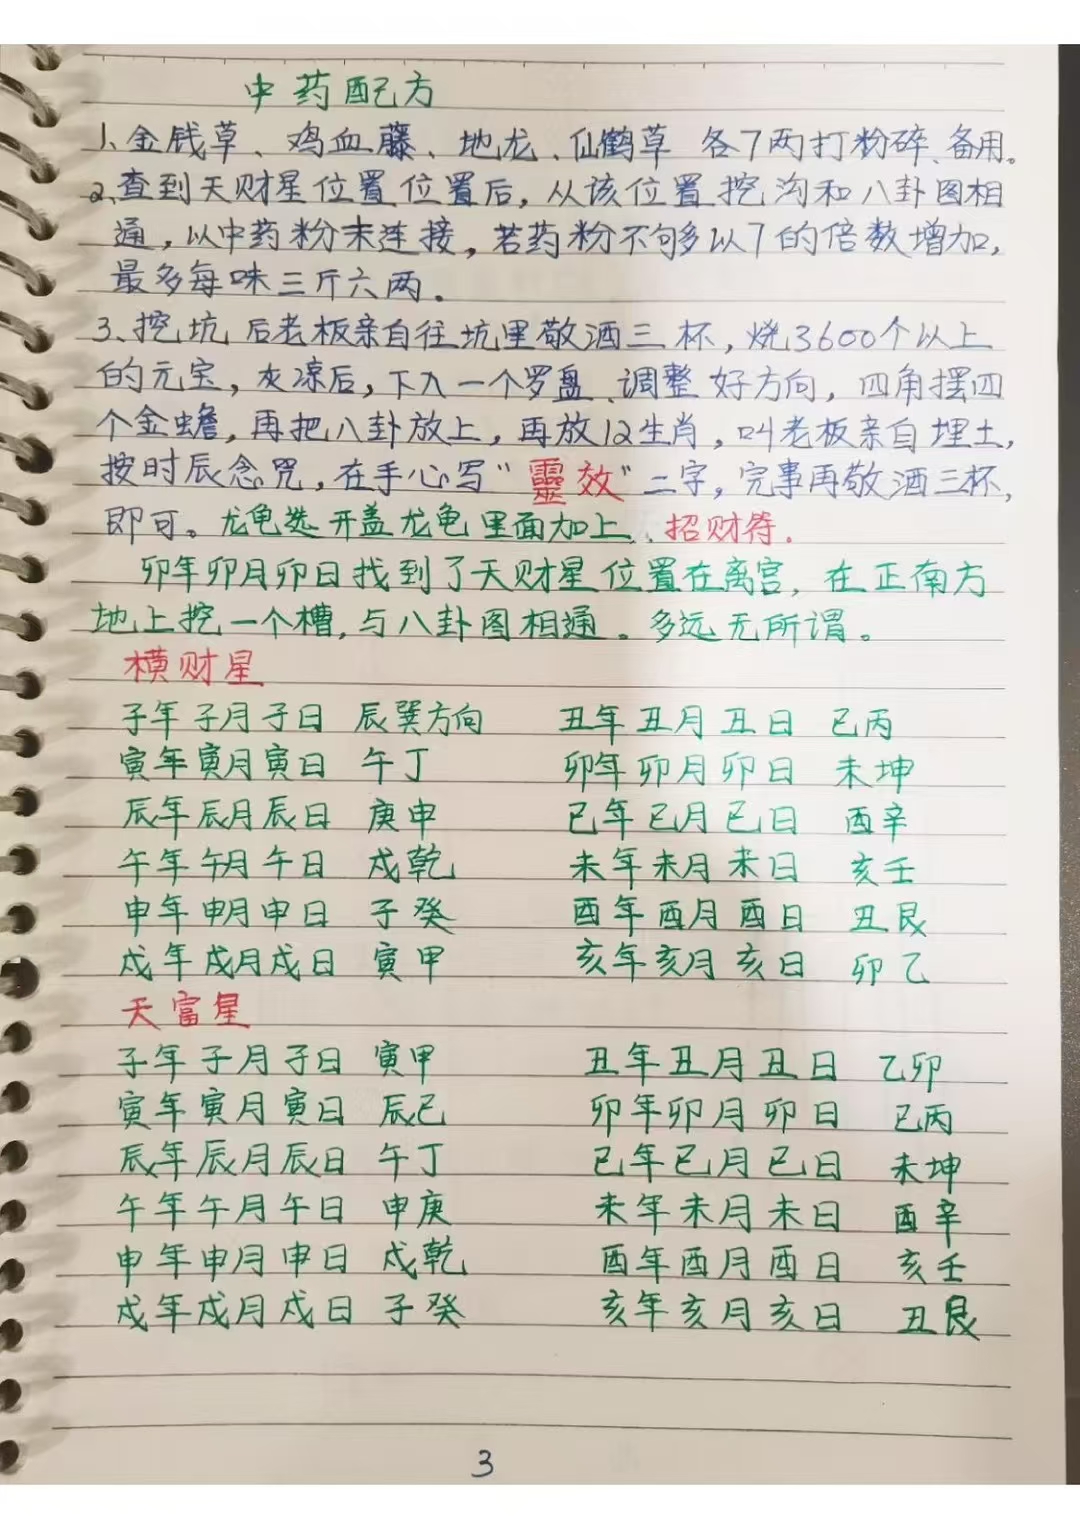 中药配方
1、金钱草、鸡血藤、地龙、仙鹤草 各7两打粉碎、备用。
2、查到天财星位置位置后，从该位置挖沟和八卦图相
通，以中药粉末连接，若药粉不够多以7的倍数增加，
最多每味三斤六两。
3、挖坑后老板亲自往坑里敬酒三杯，烧3600个以上
的元宝，灰凉后，下入一个罗盘、调整好方向，四角摆四
个金蟾，再把八卦放上，再放12生肖，叫老板亲自埋土，
按时辰念咒，在手心写“靈效”二字，完事再敬酒三杯，
即可。龙龟选开盖龙龟里面加上..招财符.
卯年卯月卯日找到了天财星位置在离宫，在正南方
地上挖一个槽，与八卦图相通。多远无所谓。
横财星
子年子月子日 辰巽方向 丑年丑月丑日 巳丙
寅年寅月寅日 午丁 卯年卯月卯日 未坤
辰年辰月辰日 庚申 巳年巳月巳日 酉辛
午年午月午日 戌乾 未年未月未日 亥壬
申年申月申日 子癸 酉年酉月酉日 丑艮
戌年戌月戌日 寅甲 亥年亥月亥日 卯乙
天富星
子年子月子日 寅甲 丑年丑月丑日 乙卯
寅年寅月寅日 辰巳 卯年卯月卯日 巳丙
辰年辰月辰日 午丁 巳年巳月巳日 未坤
午年午月午日 申庚 未年未月未日 酉辛
申年申月申日 戌乾 酉年酉月酉日 亥壬
戌年戌月戌日 子癸 亥年亥月亥日 丑艮
3